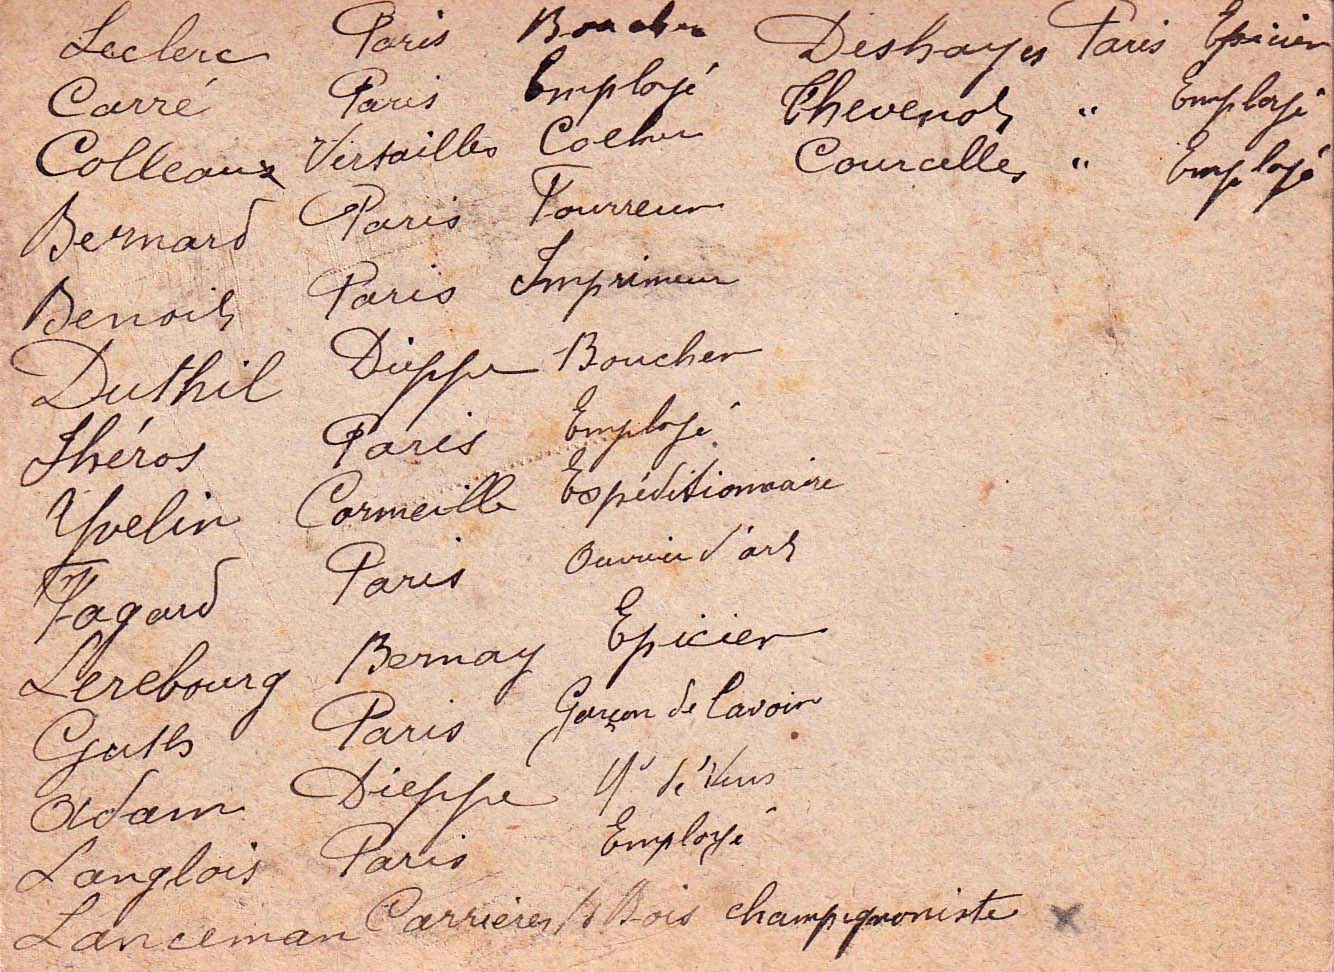 Leclerc Paris Boucher
Carré Paris Employé
Colleaux Versailles Cocher
Bernard Paris Fourreur
Benoit Paris Imprimeur
Duthil Dieppe Boucher
Théros Paris Employé
Yvelin Cormeille Expéditionnaire
Fagard Paris Ouvrier d'art
Lerebourg Bernay Epicier
Guth Paris Garçon de lavoir
Adam Dieppe Md de Vins
Langlois Paris Employé
Lanceman Carrières s/s Bois champignoniste x
Deshayes Paris Epicier
Thevenot " Employé
Courcelles " Employé